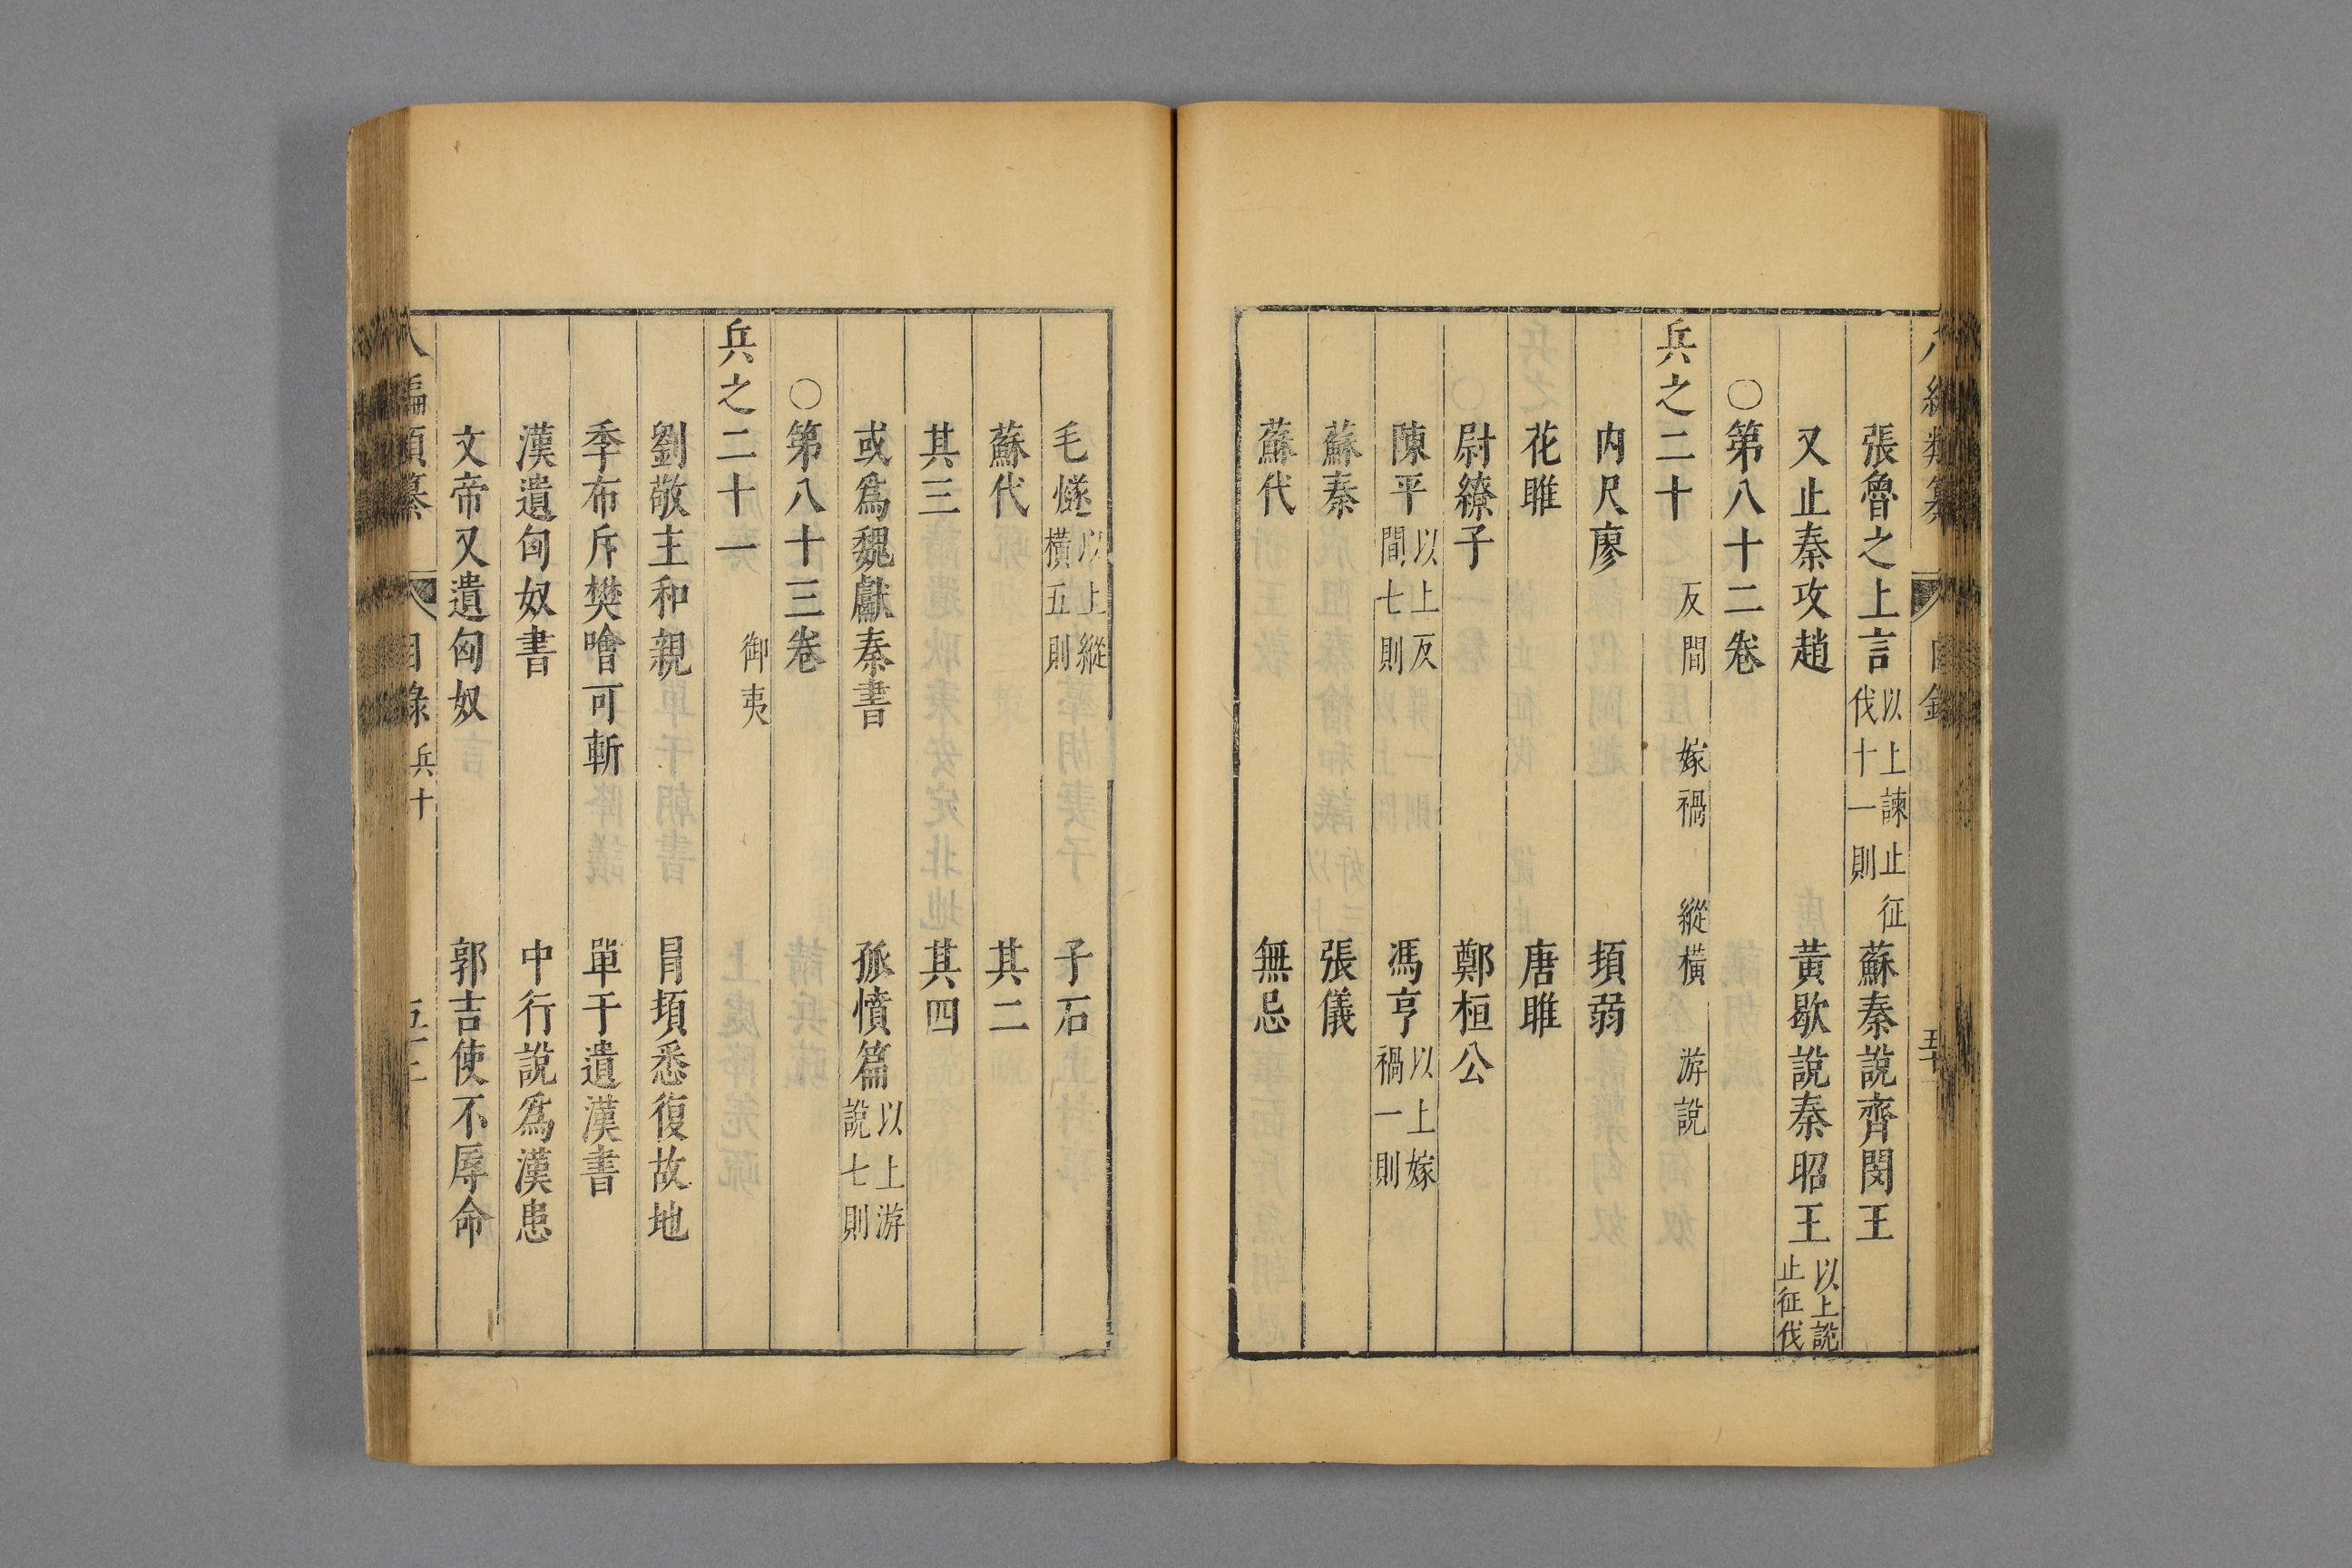 張魯之上言 以上諫止征伐十一則 蘇秦說齊閔王
又止秦攻趙 黃歇說秦昭王 以上說止征伐
○第八十二卷
兵之二十 反間 嫁禍 縱橫 游說
內尺廖 頊弱
花雎 唐雎
尉繚子 鄭桓公
陳平 以上反間七則 馮亨 以上嫁禍一則
蘇秦 張儀
蘇代 無忌
毛燧 以上縱橫五則 子石
蘇代 其二
其三 其四
或爲魏獻秦書 孤憤篇 以上游說七則
○第八十三卷
兵之二十一 御夷
劉敬主和親 冐頊悉復故地
季布斥樊噲可斬 單于遺漢書
漢遺匈奴書 中行說爲漢患
文帝又遺匈奴 郭吉使不辱命
八編類纂 目錄 兵十